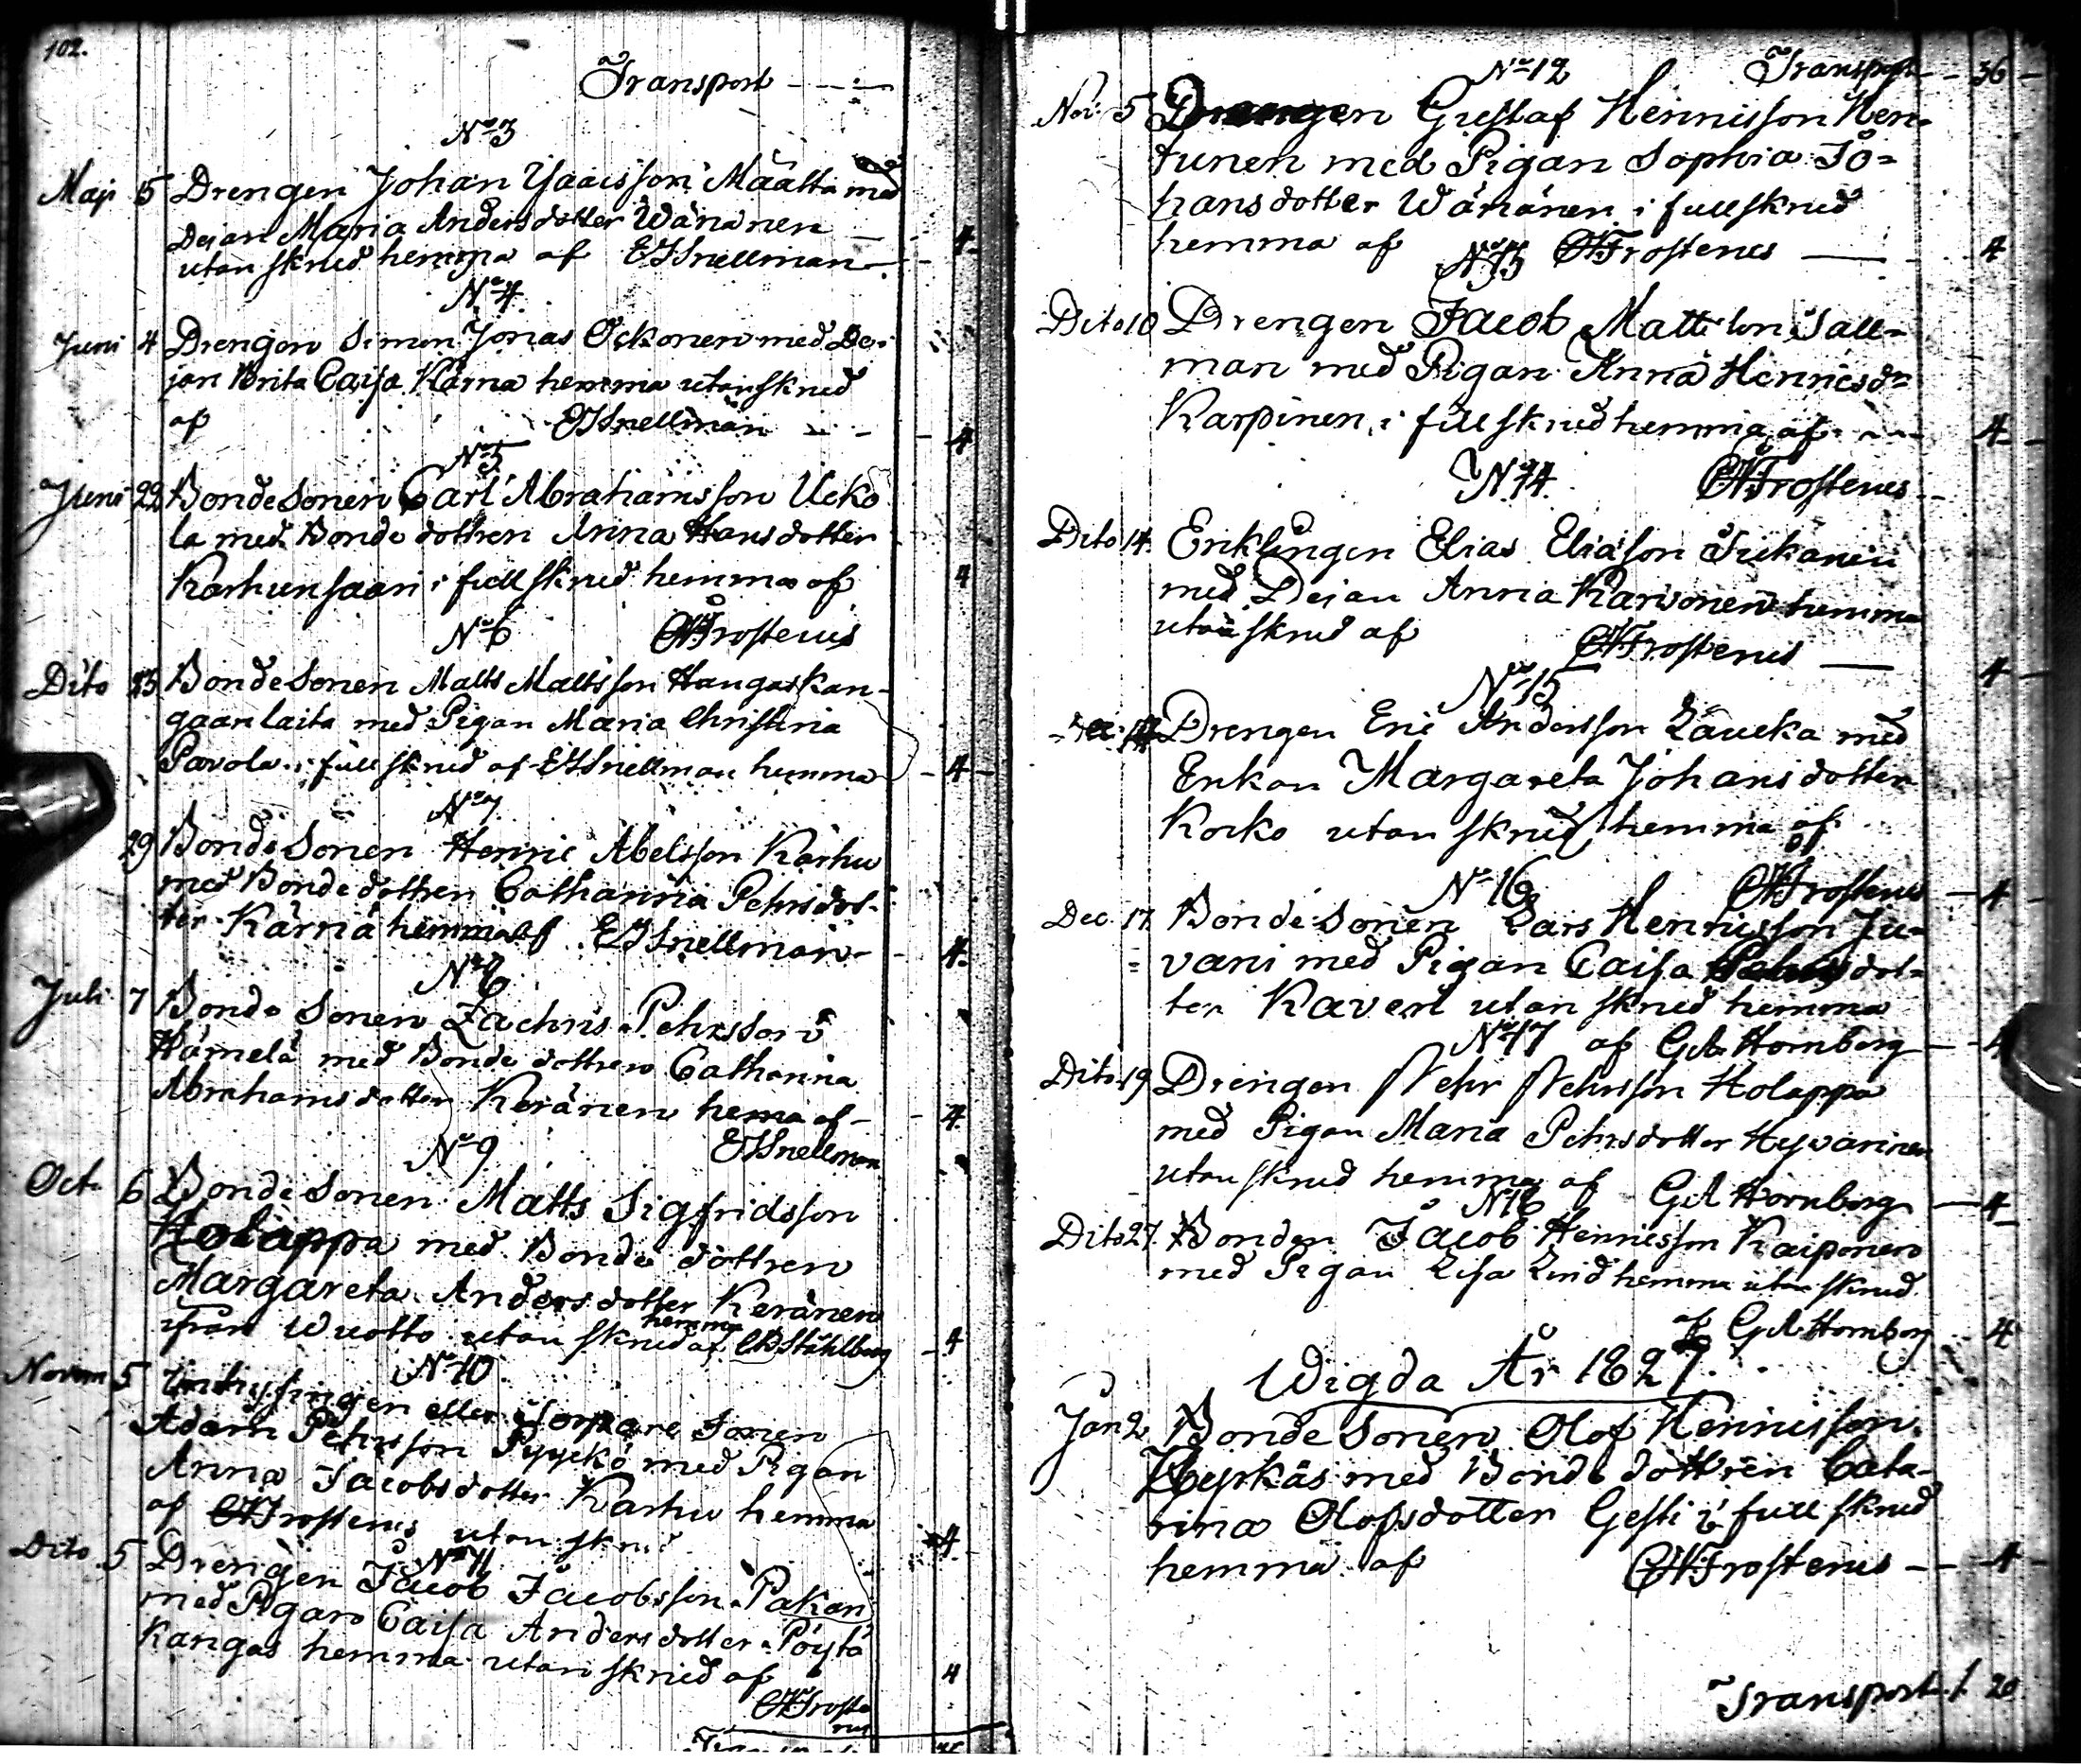 102.
Transport
No 3
Maji 15 Drengen Johan Isaacsson Määttä med
Deian Maria Andersdotter Wänänen
utan skrud hemma af EJSnellman 4
No 4
Juni 4 Drengen Simon Jonas Ockonen med De-
jan Brita Caisa Kärnä hemma utan skrud
af EJSnellman 4
No 5
Juni 22 Bonde Sonen Carl Abrahamsson Ucko
la med Bonde dottren Anna Hansdotter
Karhunsaari i full skrud hemma af 4
No 6 CHFrosterus
Dito 25 Bonde Sonen Matts Mattsson Haugaskan-
gaanlaita med Pigan Maria Christina
Pavola i full skrud af EJSnellman hemma 4
No 7
29 Bonde Sonen Henric Abelsson Karhu
med Bonde dottren Catharina Pehrsdot-
ter Kärnä hemma af EJSnellman 4
No 8
Juli 7 Bonde Sonen Zachris Pehrsson
Hämelä med Bonde dottren Catharina
Abrahamsdotter Keränen hema af 4
No 9 EJSnellman
Oct. 6 Bonde Sonen Matts Sigfridsson
Holappa med Bonde dottren
Margareta Andersdotter Keränen
hemma
ifrån Wuotto utan skrud af Ståhlberg 4
No 10
Novem 5 Inhysingen eller Torpare Sonen
Adam Pehrsson Pyyckö med Pigan
Anna Jacobsdotter Karhu hemma
af CHFrosterus utan skrud 4
No 11
Dito 5 Drengen Jacob Jacobsson Pakan
med Pigan Caisa Andersdotter Pöytä
Kangas hemma utan skrud af 4
CHFroste
rus
No 12 Transport 36
Nov. 5 Drengen Gustaf Henricsson Hen-
tunen med Pigan Sophia Jo=
hansdotter Wänänen i full skrud
hemma af CHFrosterus 4
No 13
Dito 10 Drengen Jacob Mattsson Sall-
man med Pigan Anna Henricsdr
Karpinen i full skrud hemma af 4
No 14 CHFrosterus
Dito 14 Enklingen Elias Eliasson Tiikanen
med Deian Anna Karvonen hemma
utan skrud af CHFrosterus 4
No 15
Drengen Eric Andersson Laucka med
Enkan Margareta Johansdotter
Kocko utan skrud hemma af
No 16 CHFrosterus 4
Dec. 17 Bonde Sonen Lars Henricsson Ju-
vani med Pigan Caisa Pehrsdot-
ter Kaveri utan skrud hemma
No 17 af GAHornborg 4
Dito 19 Drengen Pehr Pehrsson Holappa
med Pigan Maria Pehrsdotter Hyvärinen
utan skrud hemma af GAHornborg 4
No 18
Dito 27 Bonden Jacob Henricsson Kaiponen
med Pigan Lisa Lind hemma utan skrud
af GAHornborg 4
Wigda År 1827.
Jan 2 Bonde Sonen Olof Henricsson
Hyrkäs med Bonde dottren Cata-
rina Olofsdotter Gesti i full skrud
hemma af CHFrosterus 4
Transport 1. 20